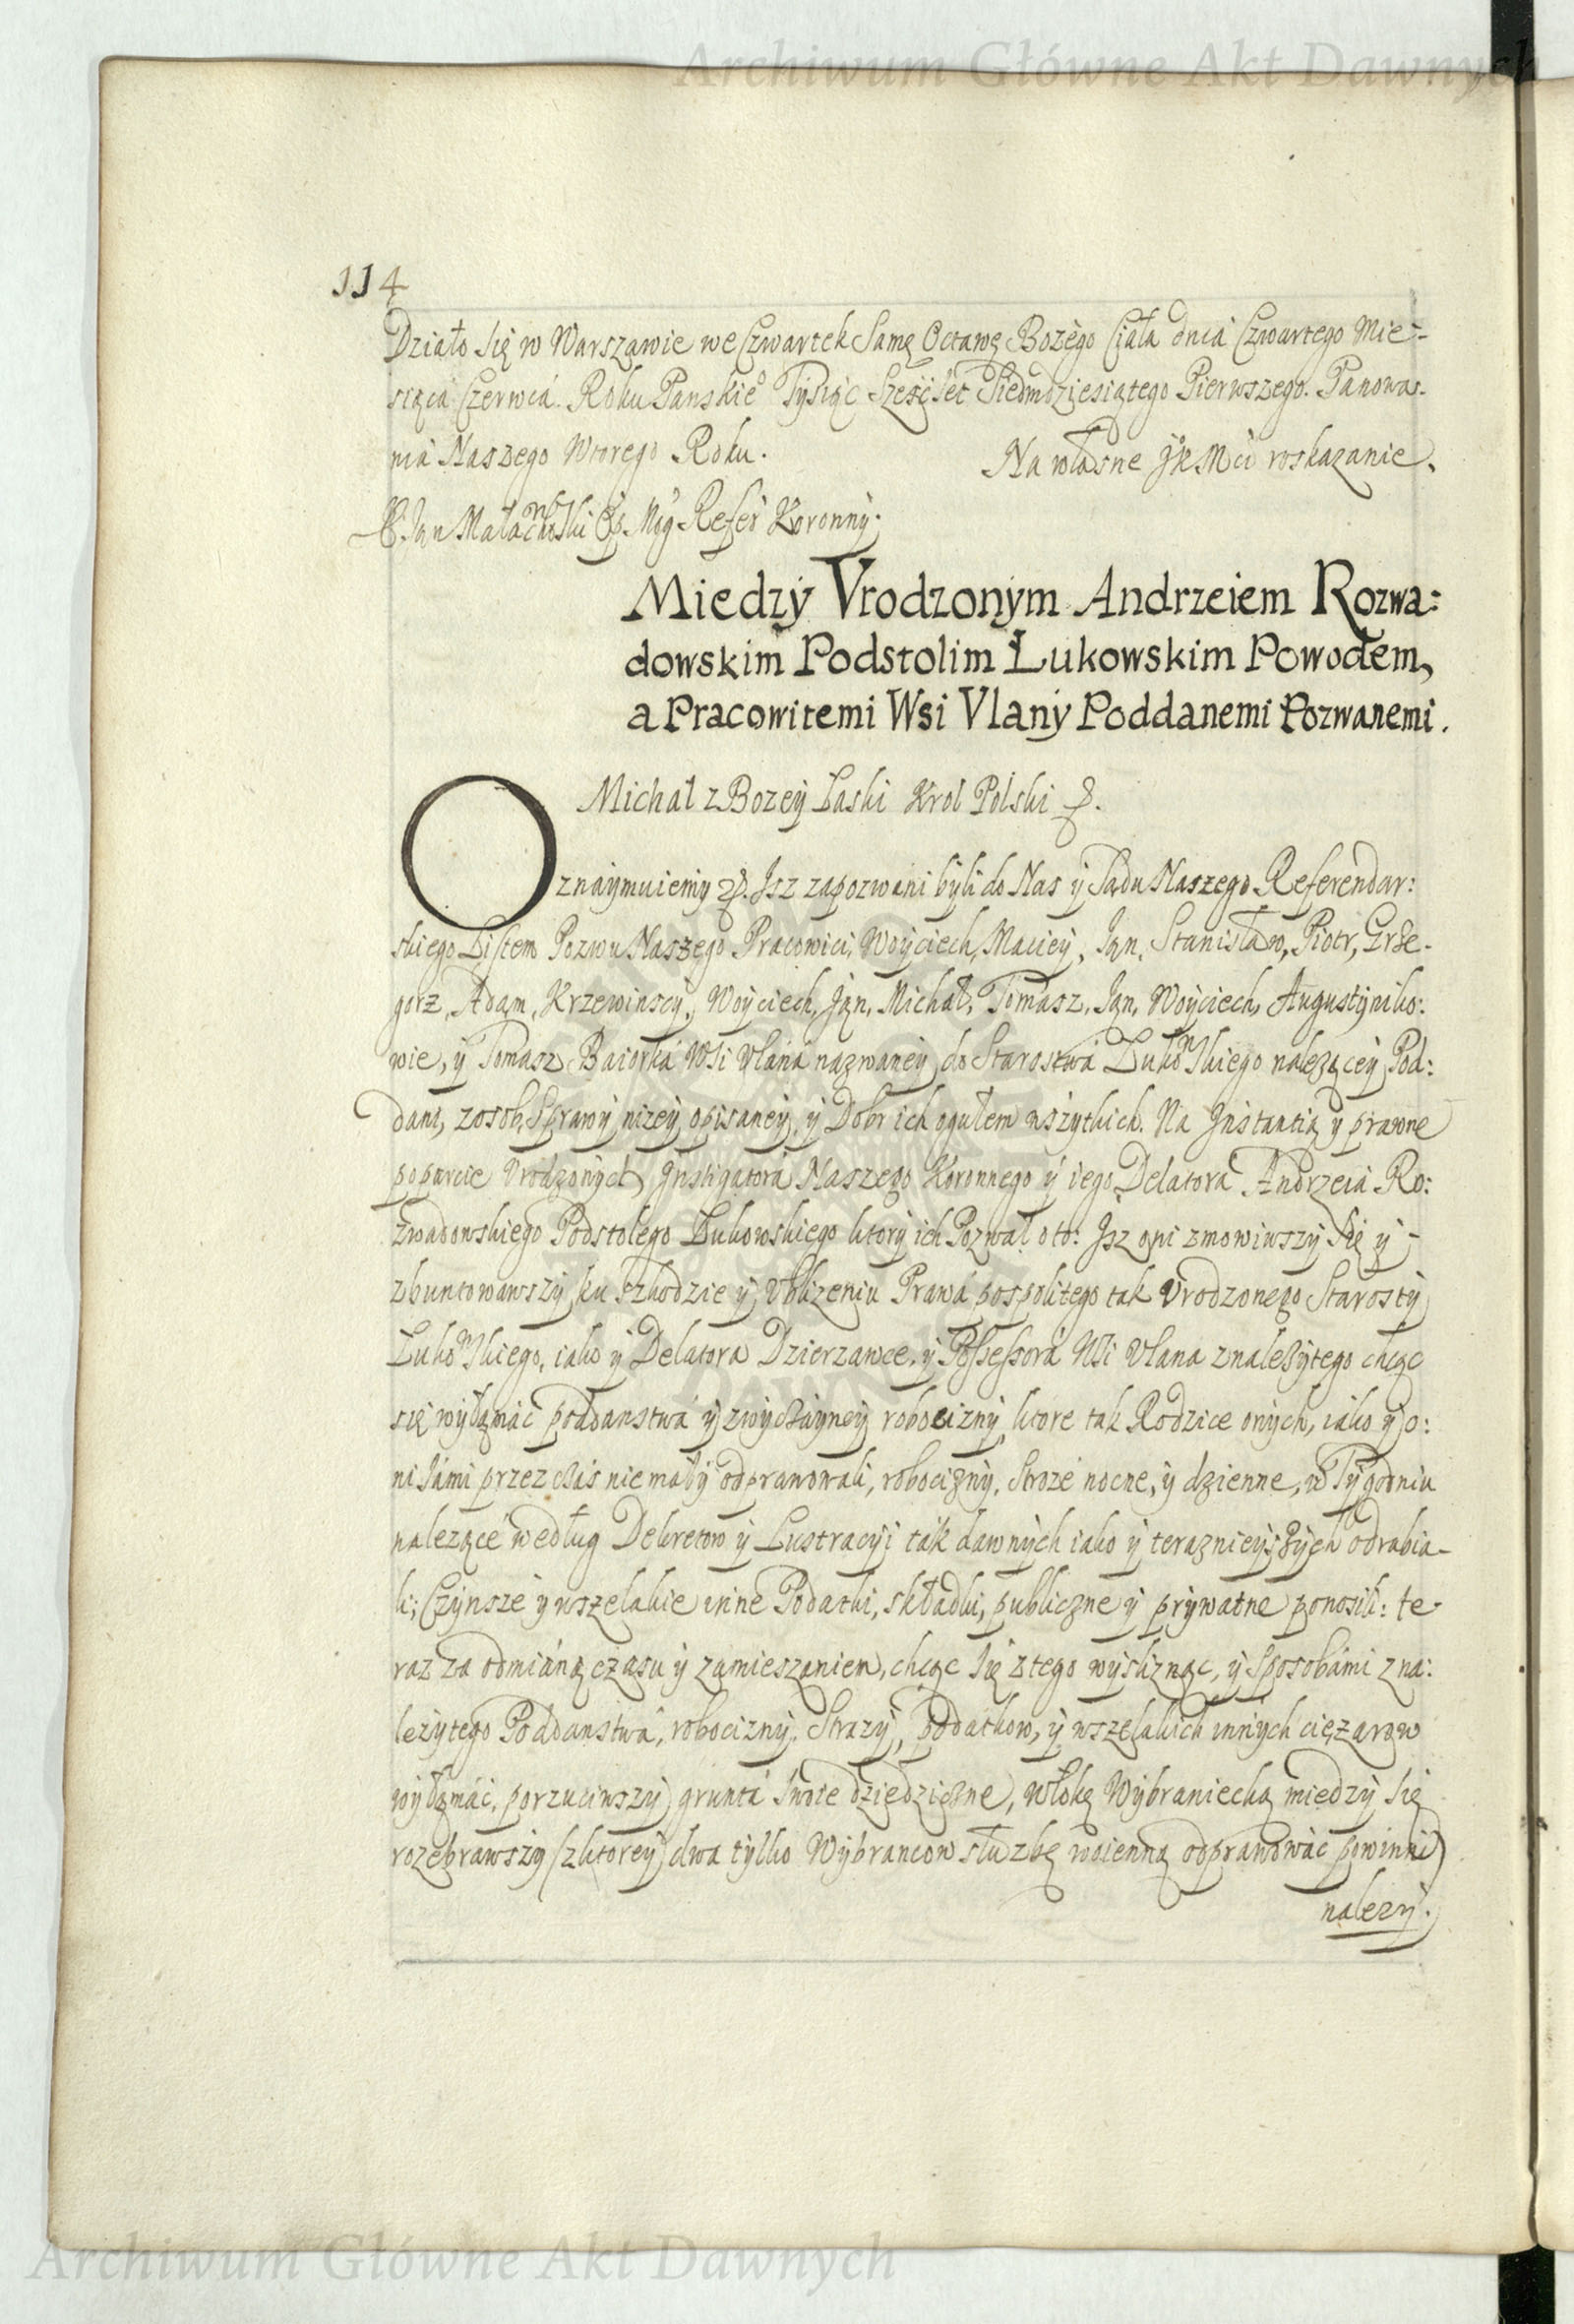 Archiwum Główne Akt Dawnych
114
Działo się w Warszawie we Czwartek Samę Octawę Bożego Ciała dniá Czwartego Mie-
siąca Czerwcá. Roku Panskieº Tysiąc Szesc Set Siedmdziesiątego Pierwszego. Panowa-
niá Naszego Wtorego Roku. Na własne JKMci roskazanie.
X. Jan Małachowski Refer Koronny.
Miedzy Vrodzonym Andrzeiem Rozwa:
dowskim Podstolim Łukowskim Powodem,
a Pracowitemi Wsi Vlany Poddanemi Pozwanemi.
Michał z Bozey Łaski Krol Polski
Oznaymuiemy. Isz zapozwani byli do Nas y Sądu Naszego Referendar:
skiego Listem Pozwu Naszego Pracowici, Woyciech, Maciey, Jan, Stanisław, Piotr, Grze-
gorz, Adam, Krzewinscy, Woyciech, Jan, Michał, Tomasz, Jan, Woyciech, Augustyniko:
wie, y Tomasz Baiorká Wsi Vlaná nazwaney do Starostwá Łukowskiego nalezącey Pod:
dani, z osob, Sprawy nizey opisaney, y Dobr ich ogułem wszytkich. Na Instantią y prawne
poparcie Vrodzonych Instigatorá Naszego Koronnego y iego Delatorá Andrzeiá Ro:
zwadowskiego Podstolego Łukowskiego ktory ich Pozwał oto: Isz oni zmowiwszy się y -
zbuntowawszy ku szkodzie y Vblizeniu Prawá pospolitego tak Vrodzonego Starosty
Łukowskiego, iako y Delatora Dzierzawce, y Possessorá Wsi Vlana z nalezytego chcąc
się wyłąmáć poddanstwá y zwyczáyney robocizny ktore tak Rodzice onych, iako y o:
ni sámi przez czás nie mały odprawowali, robocizny, Stroze nocne, y dzienne, w Tygodniu
nalezące według Dekretow y Lustracyi ták dawnych iako y teraznieyszych odrabia-
li; Czynsze y wszelakie inne Podatki, składki, publiczne y prywatne ponosili: te-
raz za odmiáną czasu y zamieszaniem, chcąc się z tego wysliznąc, y sposobámi z na:
leżytego Poddanstwá, robocizny, Strazy, poddatkow, y wszelakich innych ciężarow
wyłąmáć, porzuciwszy gruntá swoie dziedziczne, włokę Wybraniecką miedzy się
rozebrawszy (z ktorey dwa tylko Wybrancow słuzbę woienną odprawowác powinni)
nalezy.
Archiwum Główne Akt Dawnych